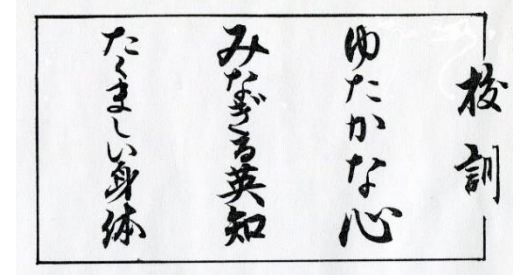 校訓
ゆたかな心
みなぎる英知
たくましい身体